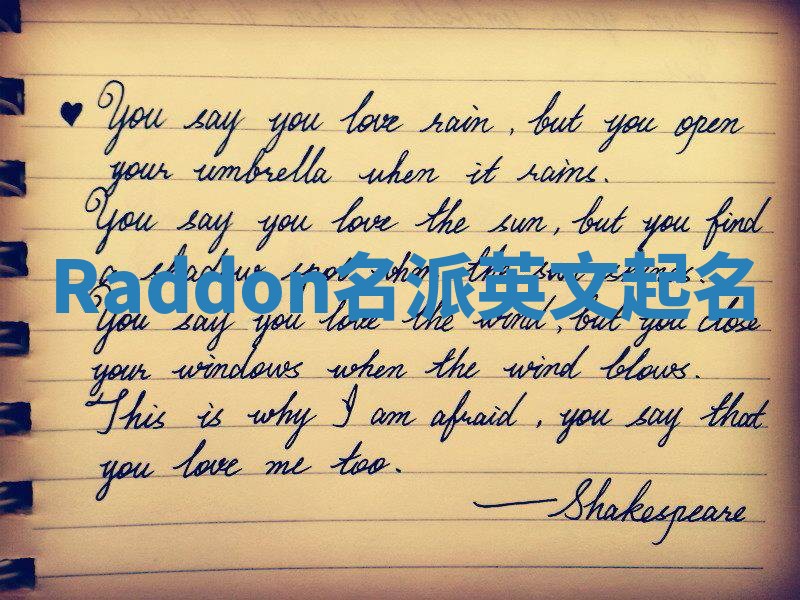 ♥ You say you love rain, but you open
your umbrella when it rains.
You say you love the sun, but you find
a shadow spot when the sun shines.
Raddon名派英文起名
You say you love the wind, but you close
your windows when the wind blows.
This is why I am afraid, you say that
you love me too.
— Shakespeare